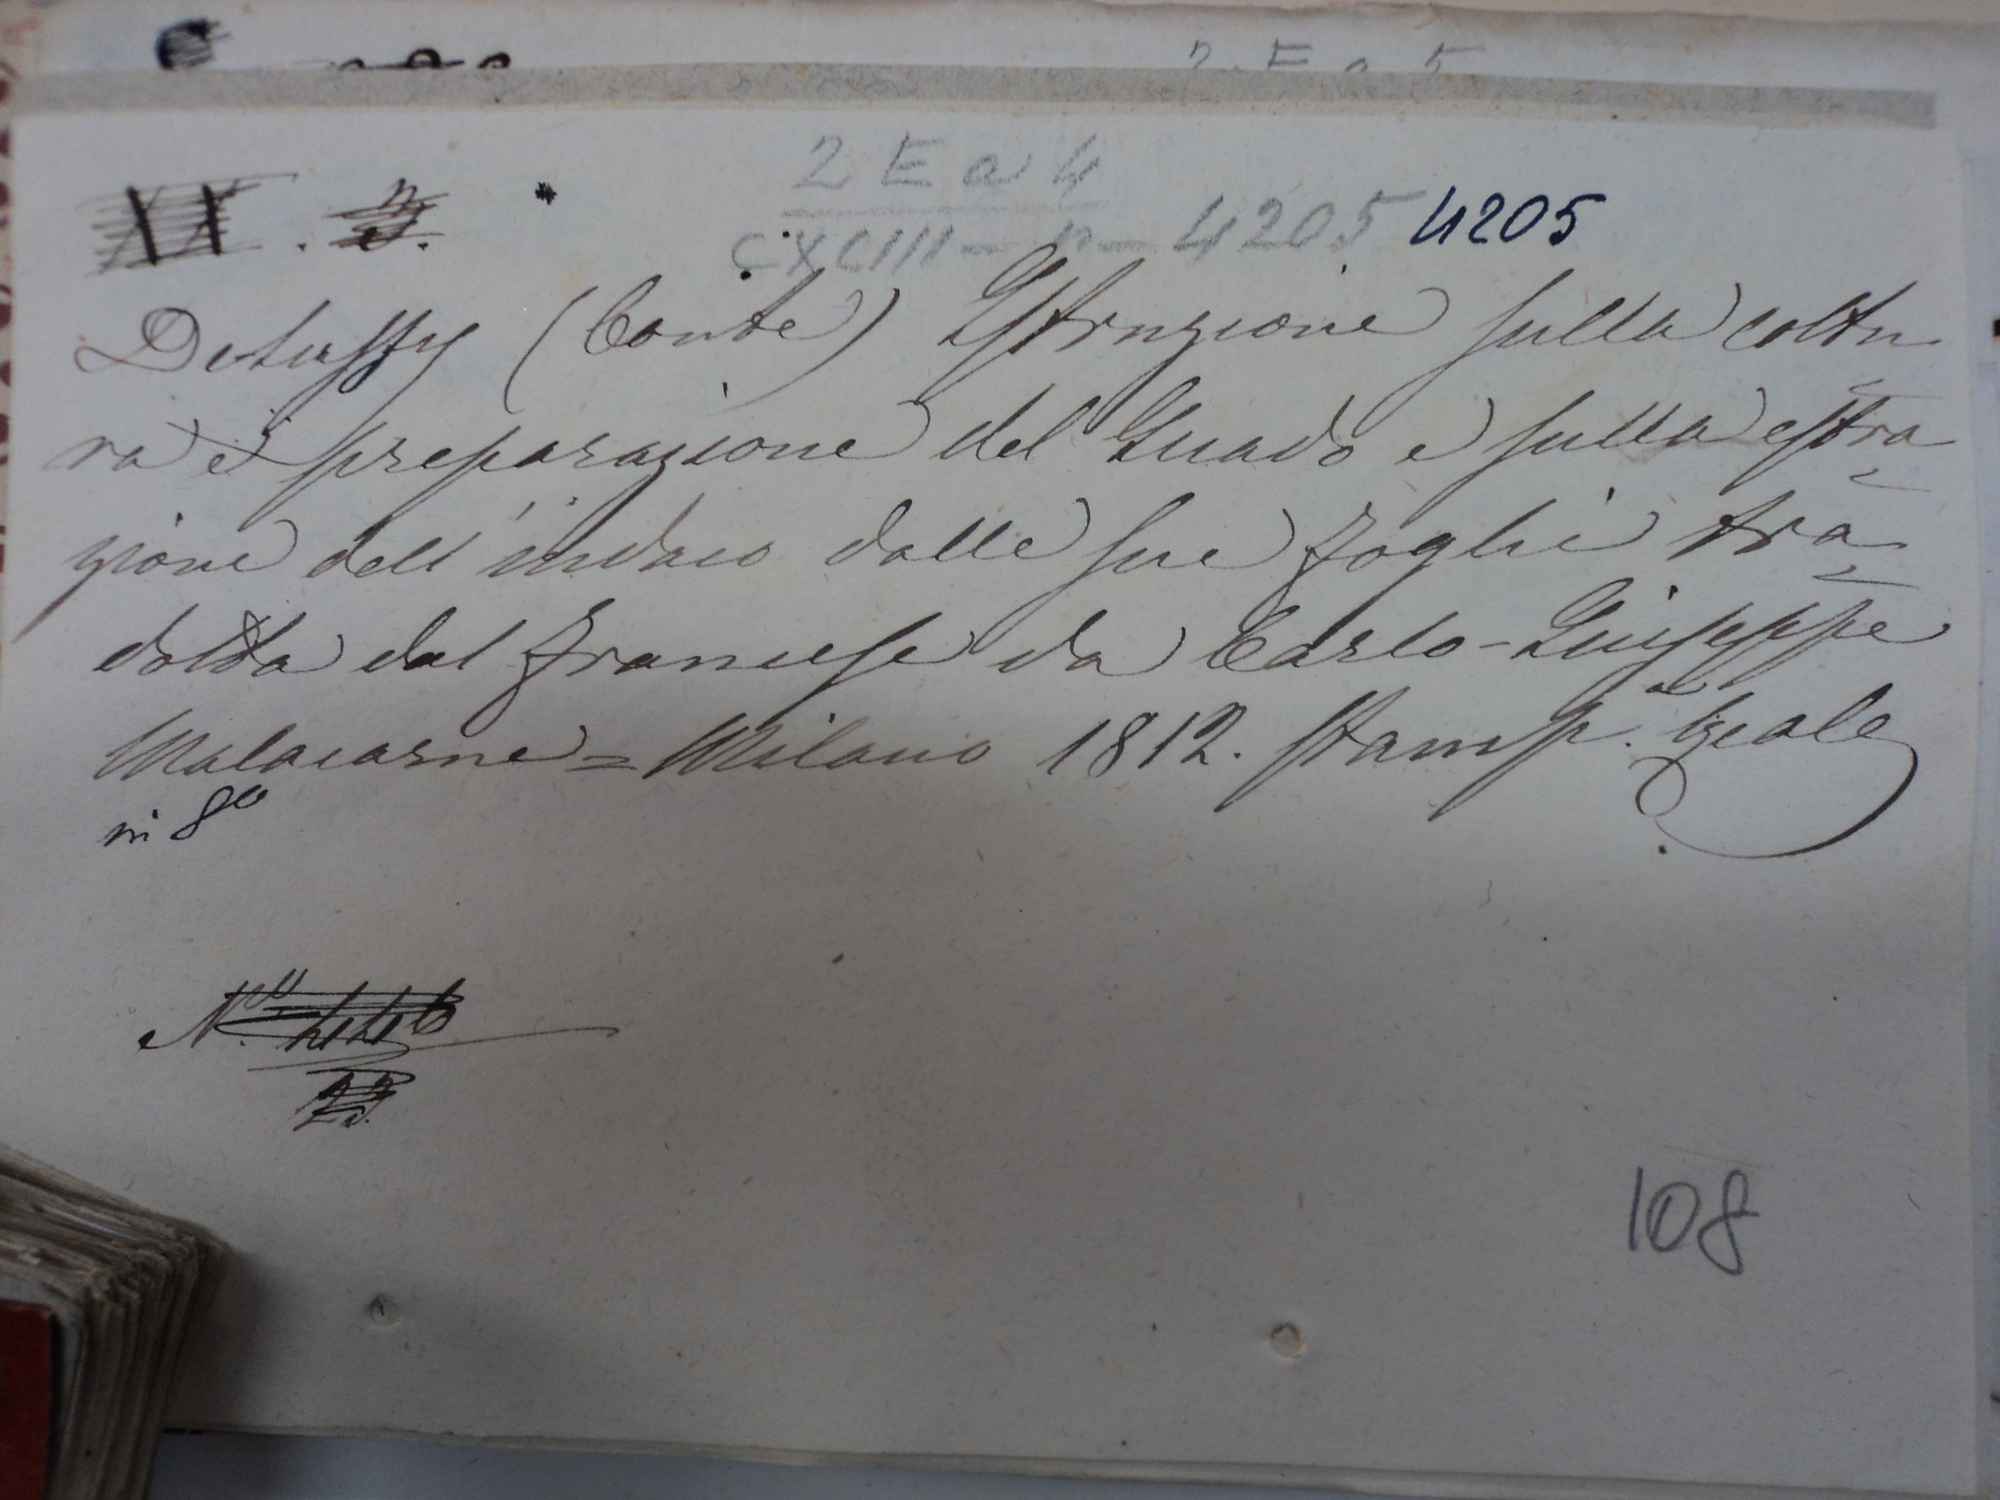 2 E a 5
2 E a 4
CXCIII - n - 4205 4205
Delussy (Conte) Istruzione sulla coltu
ra e preparazione del Guado e sulla estra=
zione dell' indaco dalle sue foglie tra=
dotta dal francese da Carlo-Giuseppe
Malacarne = Milano 1812. Stamp. Reale
in 8º
N.
108